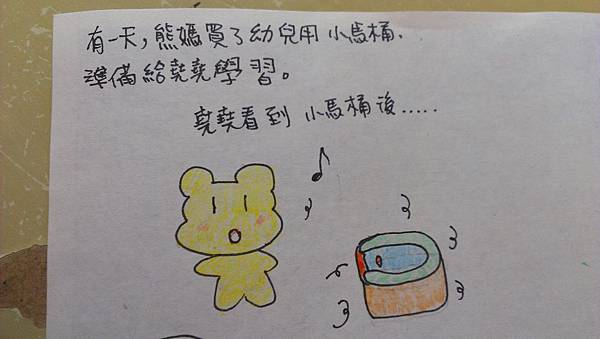 有一天，熊媽買了幼兒用小馬桶.
準備給堯堯學習。
堯堯看到小馬桶後.....